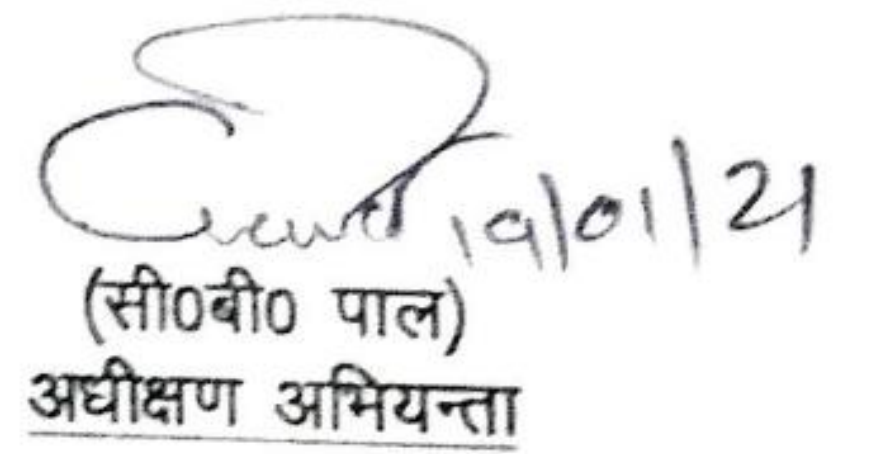 19/01/21
(सी0बी0 पाल)
अधीक्षण अभियन्ता